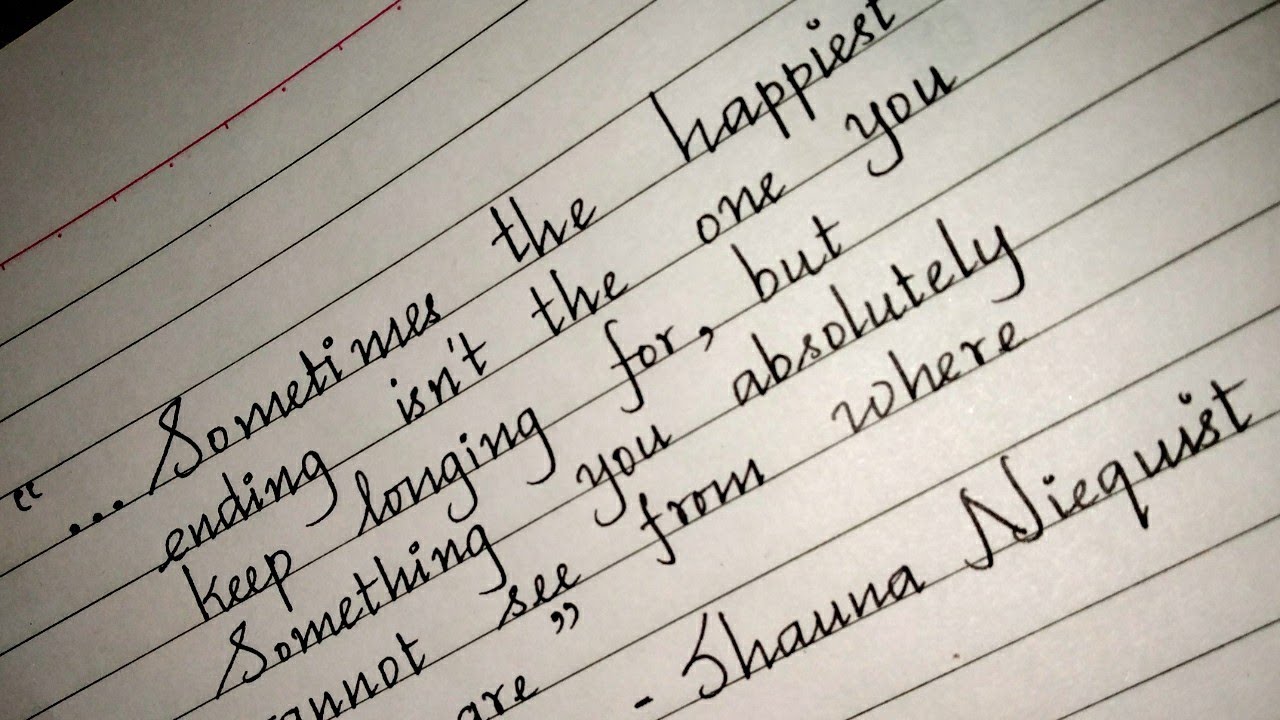 "... Sometimes the happiest
ending isn't the one you
keep longing for, but
Something you absolutely
cannot see from where
are "
- Shauna Niequist